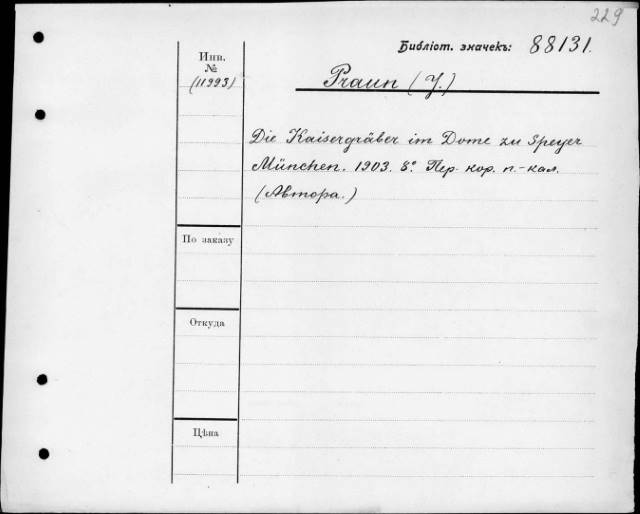 229
Библіот. значекъ: 88131.
Инв.
№
(11993)
Praun (J.)
Die Kaisergräber im Dome zu Speyer
München. 1903. 8°. Пер. кор. п.-кал.
(Автора.)
По заказу
Откуда
Цѣна